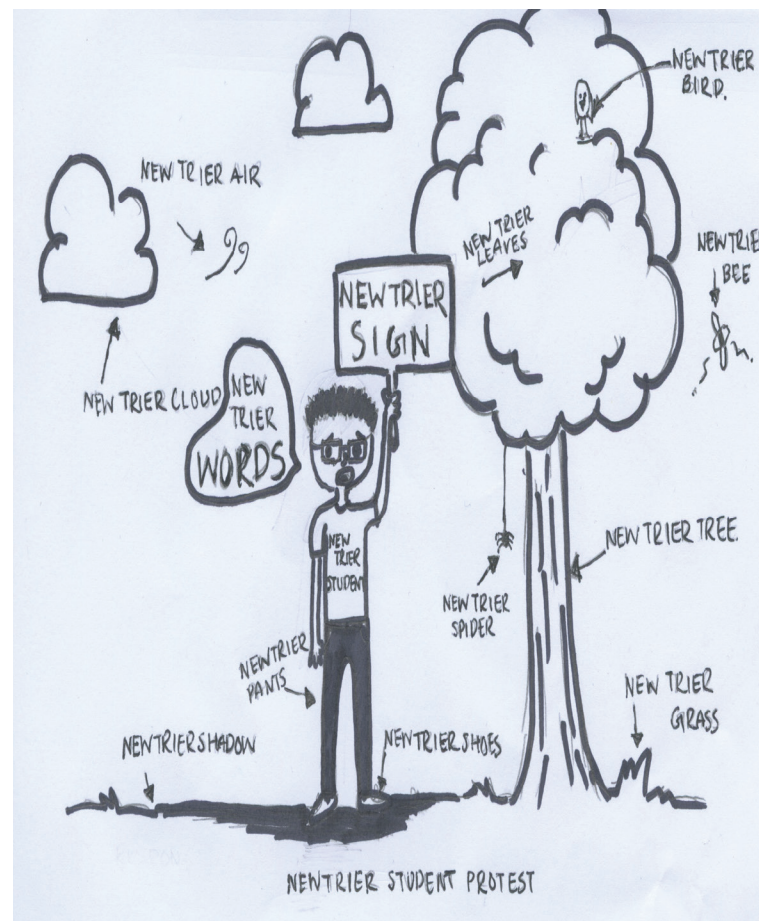 NEW TRIER
BIRD.
NEW TRIER AIR
NEW TRIER
LEAVES
NEW TRIE
BEE
NEW TRIER
SIGN
NEW TRIER CLOUD
NEW
TRIER
WORDS
NEW
TRIER
STUDENT
NEW TRIER TREE.
NEW TRIER
SPIDER
NEW TRIER
PANTS
NEW TRIER
GRASS
NEW TRIER SHADOW
NEW TRIER SHOES
NEW TRIER STUDENT PROTEST